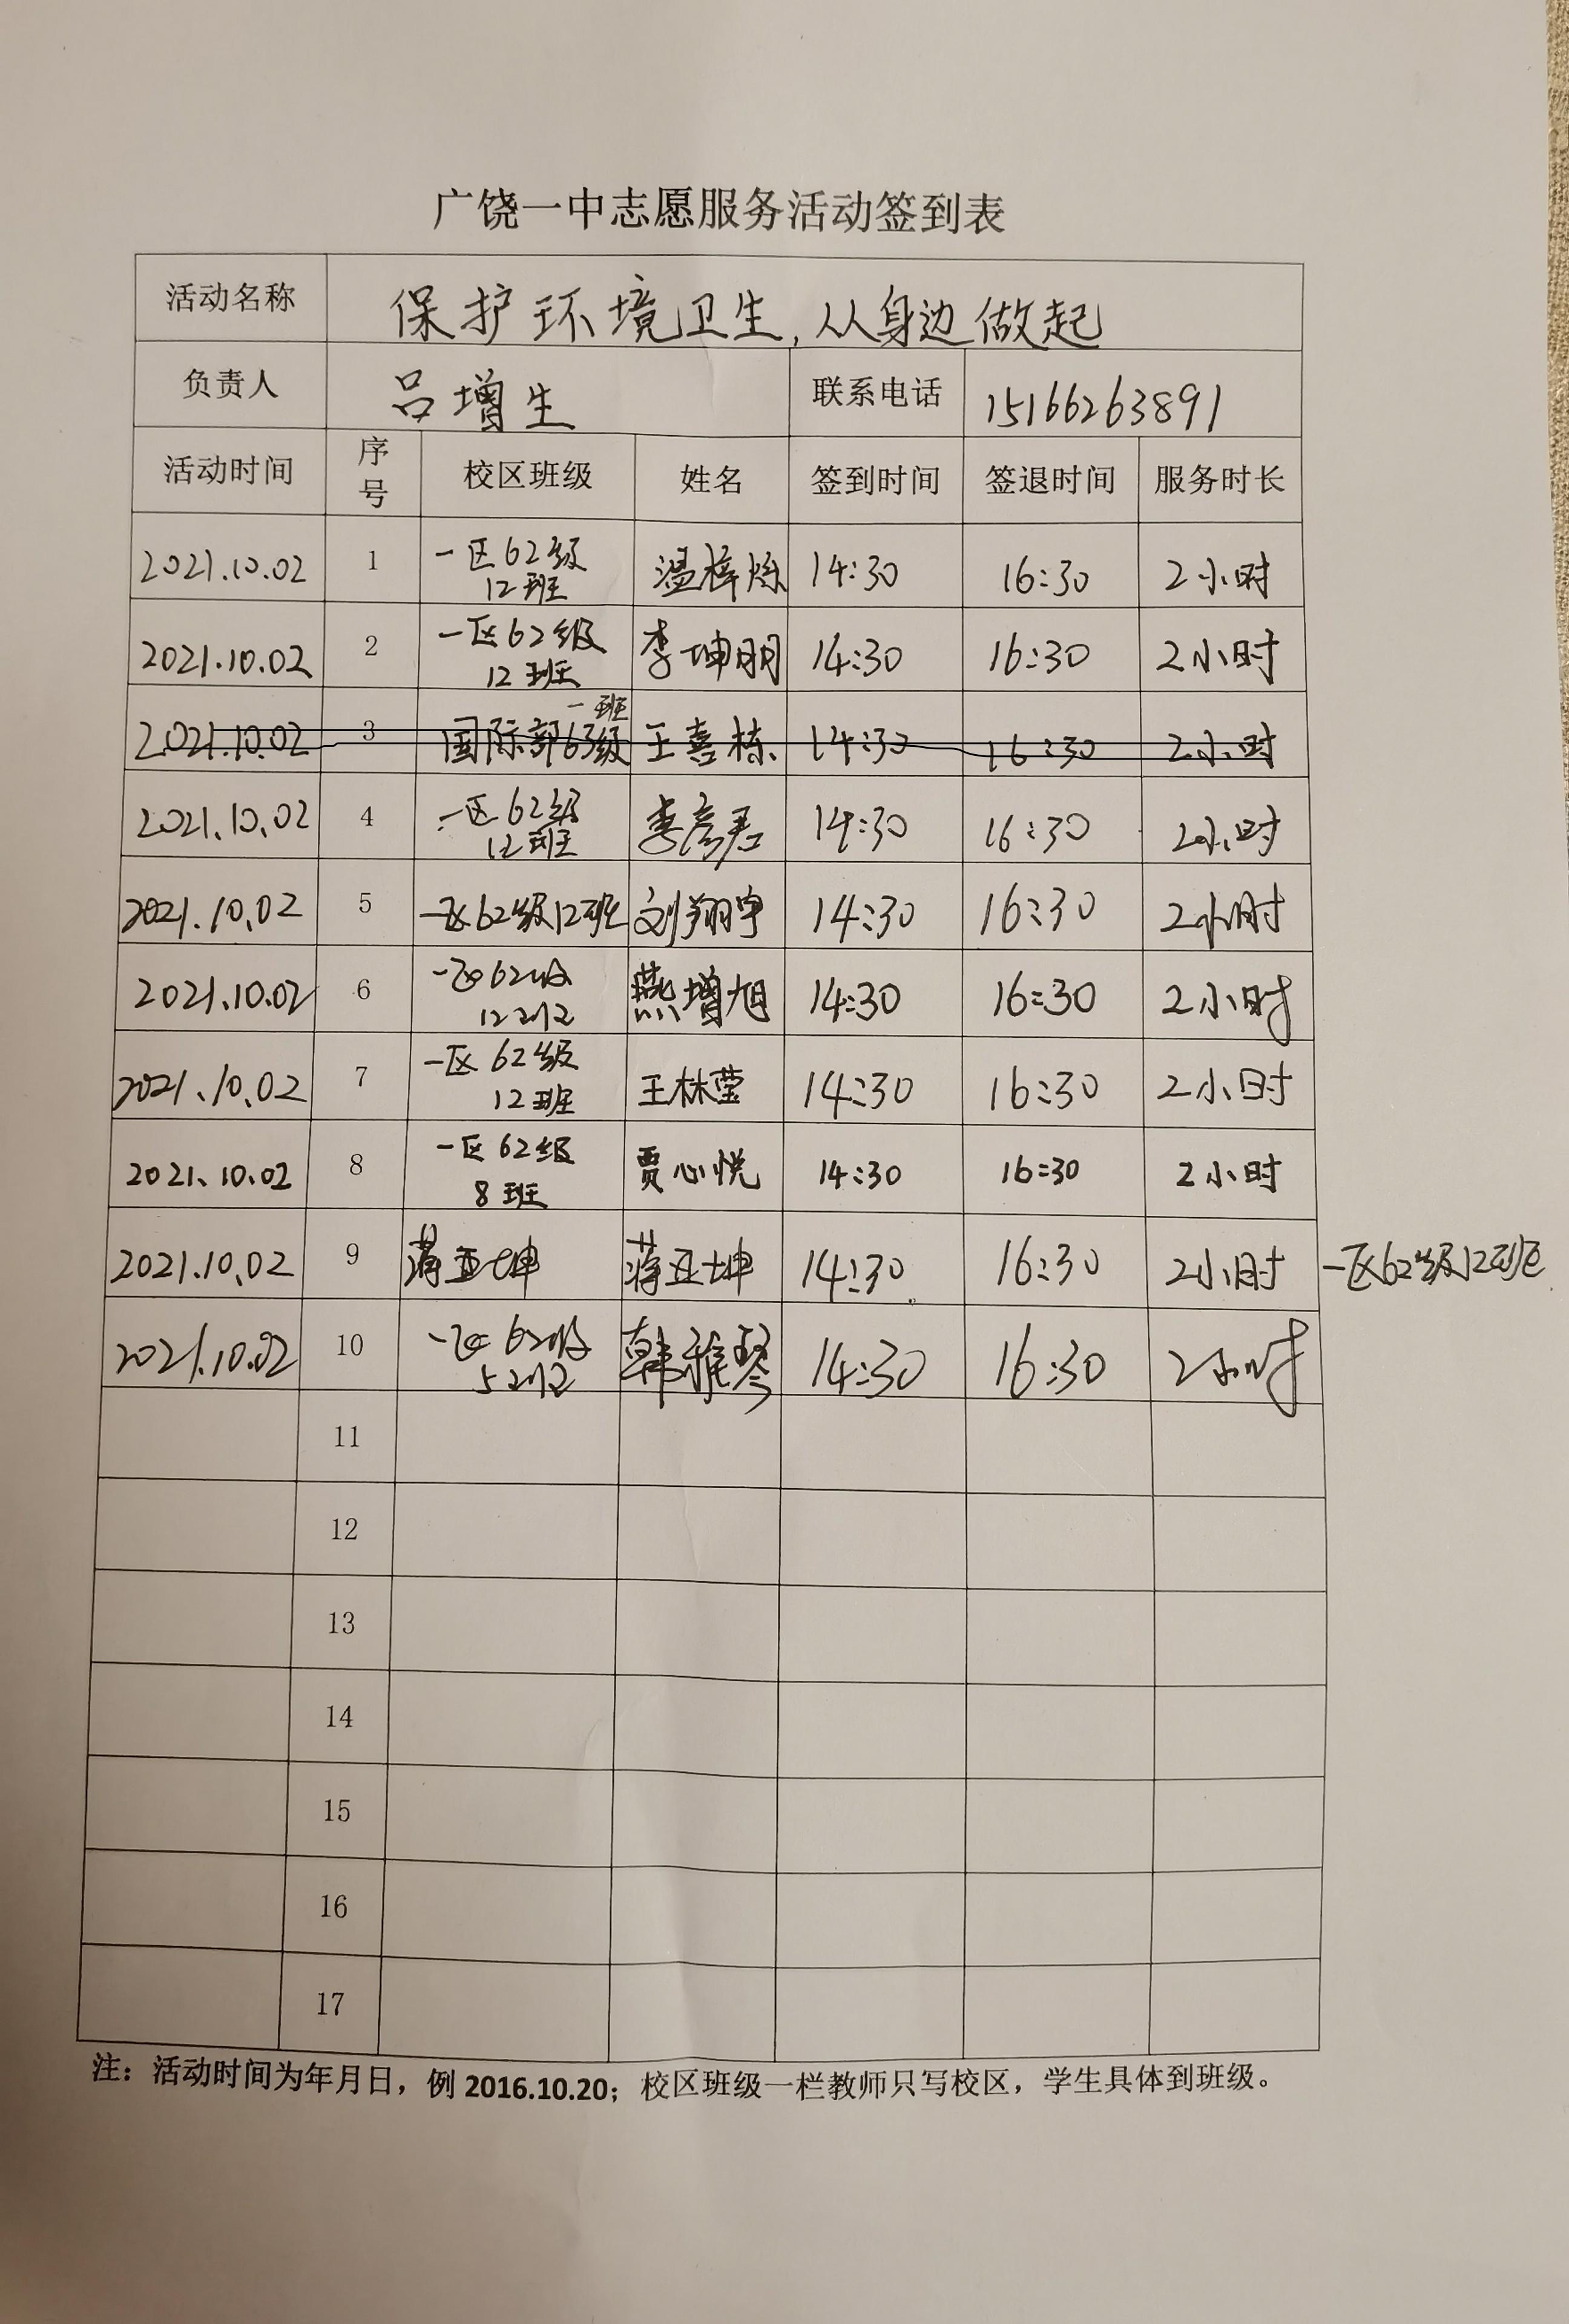 广饶一中志愿服务活动签到表
活动名称 保护环境卫生,从身边做起
负责人 吕增生 联系电话 15166263891
活动时间 序号 校区班级 姓名 签到时间 签退时间 服务时长
2021.10.02 1 一区62级12班 温梓烁 14:30 16:30 2小时
2021.10.02 2 一区62级12班 李坤朋 14:30 16:30 2小时
2021.10.02 3 国际部63级一班 王喜栋 14:30 16:30 2小时
2021.10.02 4 一区62级12班 李彦君 14:30 16:30 2小时
2021.10.02 5 一区62级12班 刘翔宇 14:30 16:30 2小时
2021.10.02 6 一区62级12班 燕增旭 14:30 16:30 2小时
2021.10.02 7 一区62级12班 王林莹 14:30 16:30 2小时
2021.10.02 8 一区62级8班 贾心悦 14:30 16:30 2小时
2021.10.02 9 蒋亚坤 蒋亚坤 14:30 16:30 2小时 一区62级12班
2021.10.02 10 一区62级5班 韩雅琴 14:30 16:30 2小时
11
12
13
14
15
16
17
注：活动时间为年月日，例 2016.10.20；校区班级一栏教师只写校区，学生具体到班级。